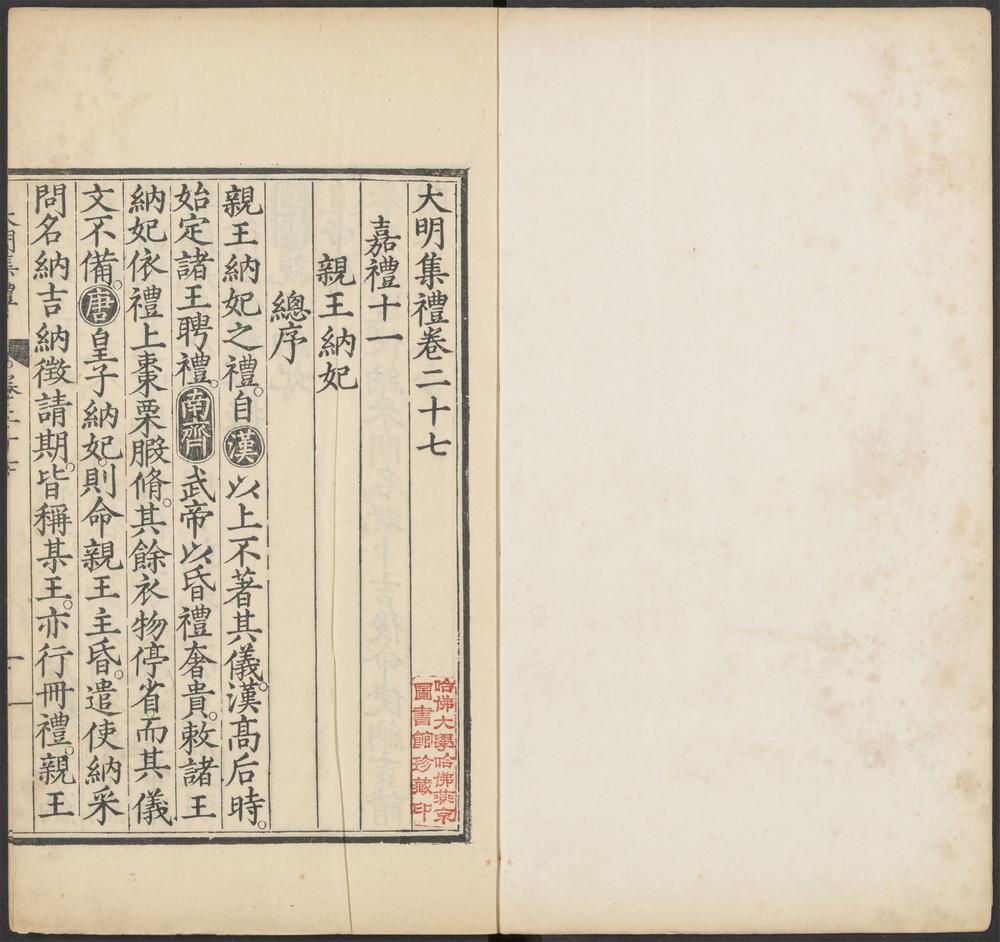 大明集禮卷二十七
嘉禮十一
親王納妃
總序
親王納妃之禮。自漢以上不著其儀。漢高后時。
始定諸王聘禮。南齊武帝以昏禮奢貴。敕諸王
納妃依禮上棗栗腶脩。其餘衣物停省而其儀
文不備。唐皇子納妃。則命親王主昏。遣使納采
問名納吉納徵請期。皆稱某王。亦行冊禮。親王
哈佛大學哈佛燕京
圖書館珍藏印